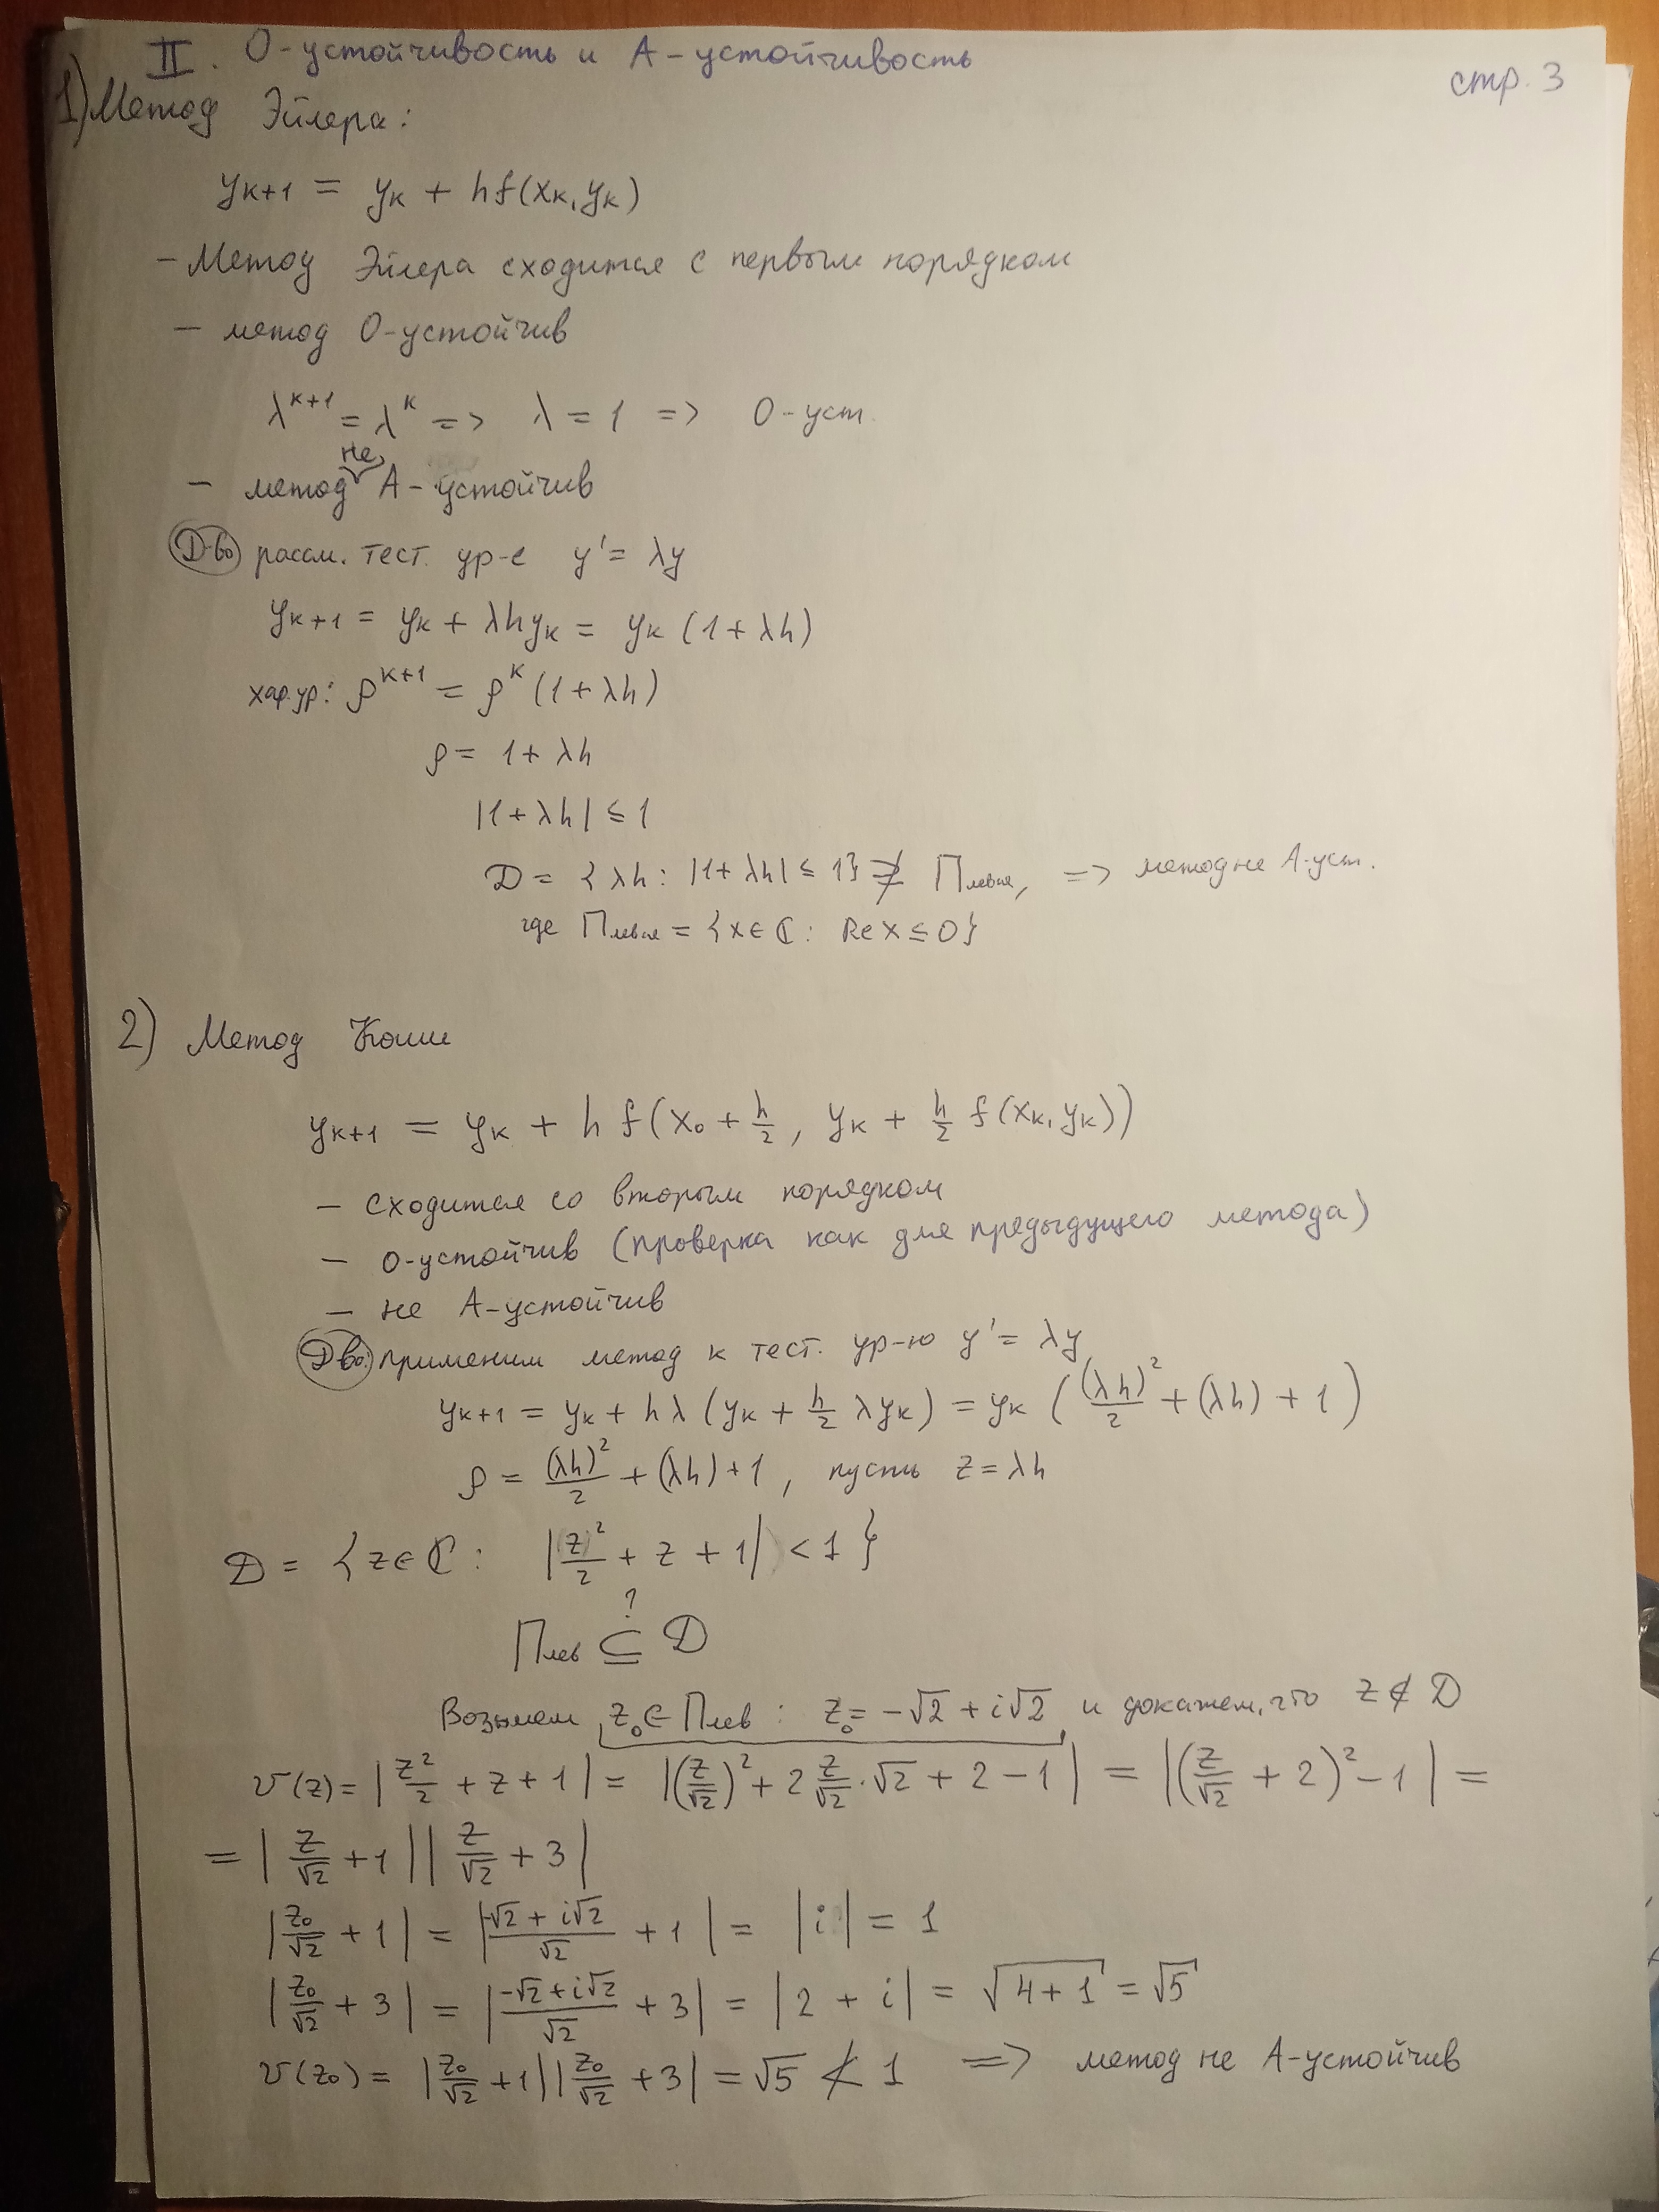 II. О-устойчивость и А-устойчивость
стр. 3
1) Метод Эйлера:
yₖ₊₁ = yₖ + hf(xₖ, yₖ)
- Метод Эйлера сходится с первым порядком
- метод О-устойчив
λᵏ⁺¹ = λᵏ => λ = 1 => О-уст.
- метод не А-устойчив
Д-во рассм. тест. ур-е y' = λy
yₖ₊₁ = yₖ + λhyₖ = yₖ(1 + λh)
хар.ур: ρᵏ⁺¹ = ρᵏ(1 + λh)
ρ = 1 + λh
|1 + λh| ≤ 1
D = {λh: |1 + λh| ≤ 1} ⊉ Плевая, => метод не А-уст.
где Плевая = {x ∈ ℂ: Re x ≤ 0}
2) Метод Коши
yₖ₊₁ = yₖ + h f(x₀ + h/2, yₖ + h/2 f(xₖ, yₖ))
- сходится со вторым порядком
- О-устойчив (проверка как для предыдущего метода)
- не А-устойчив
Д-во: применим метод к тест. ур-ю y' = λy
yₖ₊₁ = yₖ + hλ(yₖ + h/2 λyₖ) = yₖ((λh)²/2 + (λh) + 1)
ρ = (λh)²/2 + (λh) + 1, пусть z = λh
D = {z ∈ ℂ: |z²/2 + z + 1| < 1}
?
Плев ⊆ D
Возьмем z₀ ∈ Плев: z₀ = -√2 + i√2 и докажем, что z ∉ D
v(z) = |z²/2 + z + 1| = |(z/√2)² + 2 z/√2 · √2 + 2 - 1| = |(z/√2 + 2)² - 1| =
= |z/√2 + 1||z/√2 + 3|
|z₀/√2 + 1| = |(-√2 + i√2)/√2 + 1| = |i| = 1
|z₀/√2 + 3| = |(-√2 + i√2)/√2 + 3| = |2 + i| = √(4 + 1) = √5
v(z₀) = |z₀/√2 + 1||z₀/√2 + 3| = √5 ≮ 1 => метод не А-устойчив